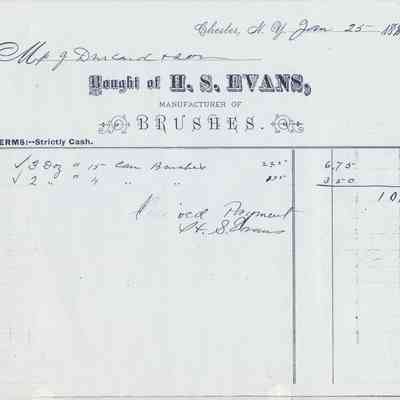 Chester, N. Y. Jan 25 188
Bought of H. S. EVANS,
MANUFACTURER OF
BRUSHES.
TERMS:--Strictly Cash.
✓ 3 Doz " 15 Can Brushes 2.25 6.75
✓ 2 " " 4 " " 3.50
10
Payment
H. S. Evans